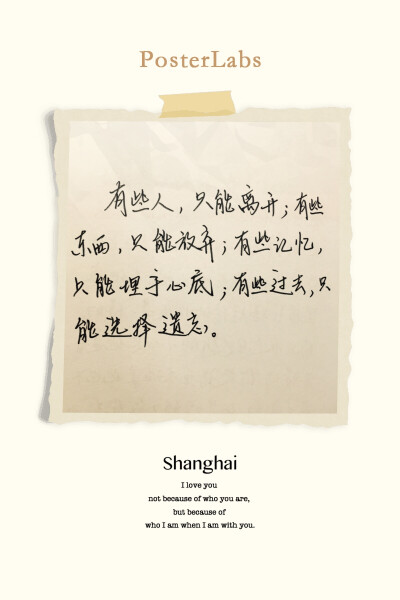 PosterLabs
有些人，只能离开；有些
东西，只能放弃；有些记忆，
只能埋于心底；有些过去，只
能选择遗忘。
Shanghai
I love you
not because of who you are,
but because of
who I am when I am with you.